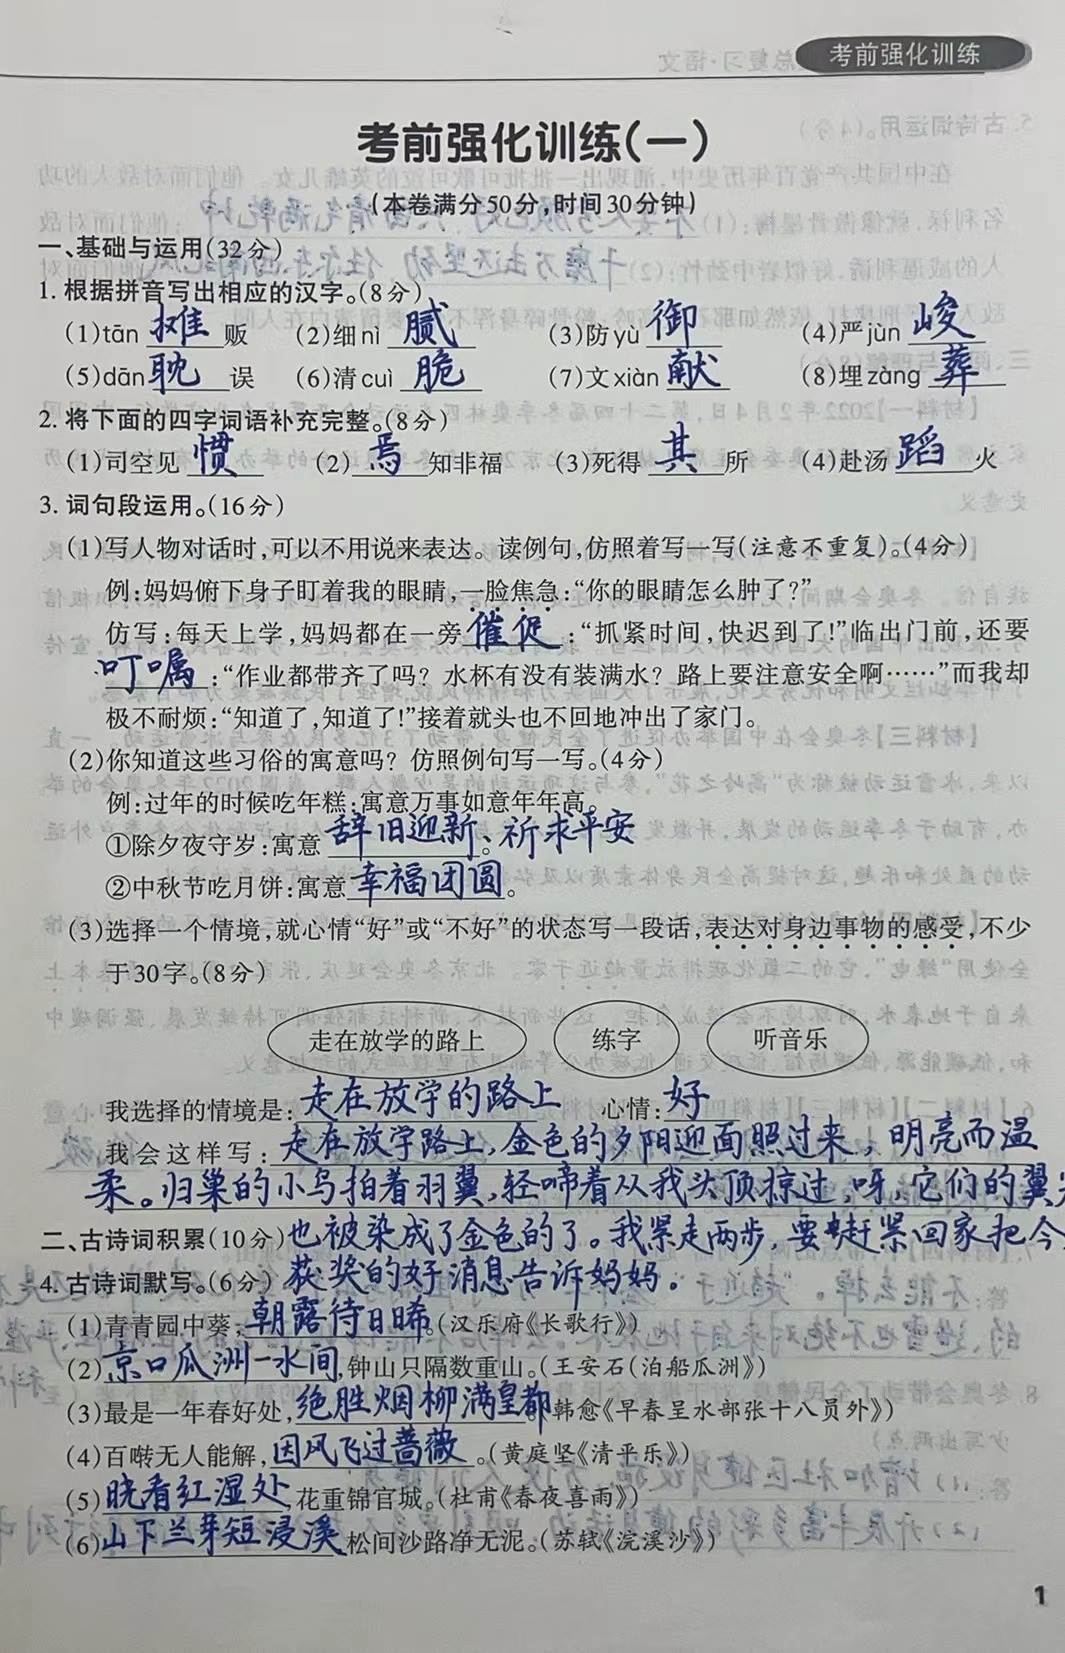 考前强化训练
总复习·语文
考前强化训练(一)
(本卷满分50分,时间30分钟)
一、基础与运用(32分)
1.根据拼音写出相应的汉字。(8分)
(1)tān 摊 贩 (2)细nì 腻 (3)防yù 御 (4)严jùn 峻
(5)dān 耽 误 (6)清cuì 脆 (7)文xiàn 献 (8)埋zàng 葬
2.将下面的四字词语补充完整。(8分)
(1)司空见 惯 (2) 焉 知非福 (3)死得 其 所 (4)赴汤 蹈 火
3.词句段运用。(16分)
(1)写人物对话时,可以不用说来表达。读例句,仿照着写一写(注意不重复)。(4分)
例:妈妈俯下身子盯着我的眼睛,一脸焦急:“你的眼睛怎么肿了?”
仿写:每天上学,妈妈都在一旁 催促 :“抓紧时间,快迟到了!”临出门前,还要
叮嘱 :“作业都带齐了吗?水杯有没有装满水?路上要注意安全啊……”而我却
极不耐烦:“知道了,知道了!”接着就头也不回地冲出了家门。
(2)你知道这些习俗的寓意吗?仿照例句写一写。(4分)
例:过年的时候吃年糕:寓意万事如意年年高。
①除夕夜守岁:寓意 辞旧迎新、祈求平安 。
②中秋节吃月饼:寓意 幸福团圆 。
(3)选择一个情境,就心情“好”或“不好”的状态写一段话,表达对身边事物的感受,不少
于30字。(8分)
走在放学的路上 练字 听音乐
我选择的情境是: 走在放学的路上 心情: 好
我会这样写: 走在放学路上,金色的夕阳迎面照过来,明亮而温
柔。归巢的小鸟拍着羽翼,轻啼着从我头顶掠过,呀,它们的翼尖
二、古诗词积累(10分) 也被染成了金色的了。我紧走两步,要赶紧回家把今
4.古诗词默写。(6分) 获奖的好消息告诉妈妈。
(1)青青园中葵, 朝露待日晞 。(汉乐府《长歌行》)
(2) 京口瓜洲一水间 ,钟山只隔数重山。(王安石《泊船瓜洲》)
(3)最是一年春好处, 绝胜烟柳满皇都 。(韩愈《早春呈水部张十八员外》)
(4)百啭无人能解, 因风飞过蔷薇 。(黄庭坚《清平乐》)
(5) 晓看红湿处 ,花重锦官城。(杜甫《春夜喜雨》)
(6) 山下兰芽短浸溪 ,松间沙路净无泥。(苏轼《浣溪沙》)
1